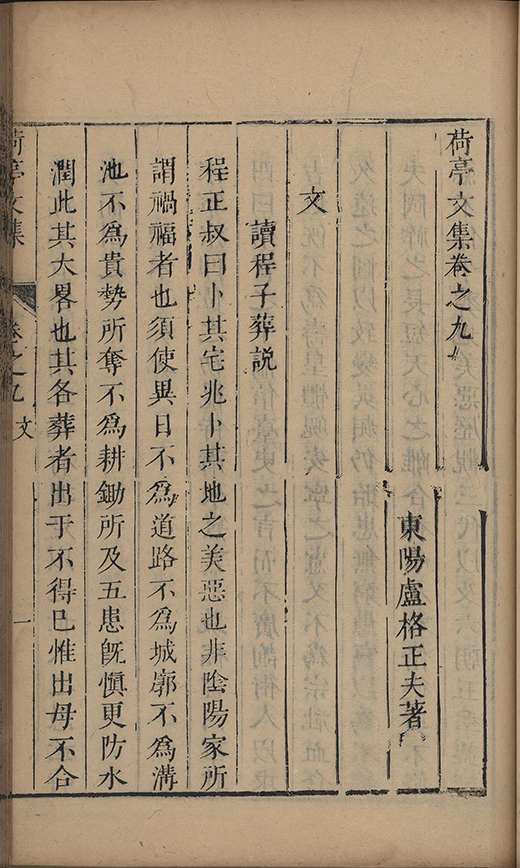 荷亭文集卷之九
東陽盧格正夫著
文
讀程子葬説
程正叔曰卜其宅兆卜其地之美惡也非陰陽家所
謂禍福者也須使異日不爲道路不爲城廓不爲溝
池不爲貴勢所奪不爲耕鋤所及五患旣愼更防水
潤此其大畧也其各葬者出于不得已惟出母不合
荷亭文集
卷之九 文
一